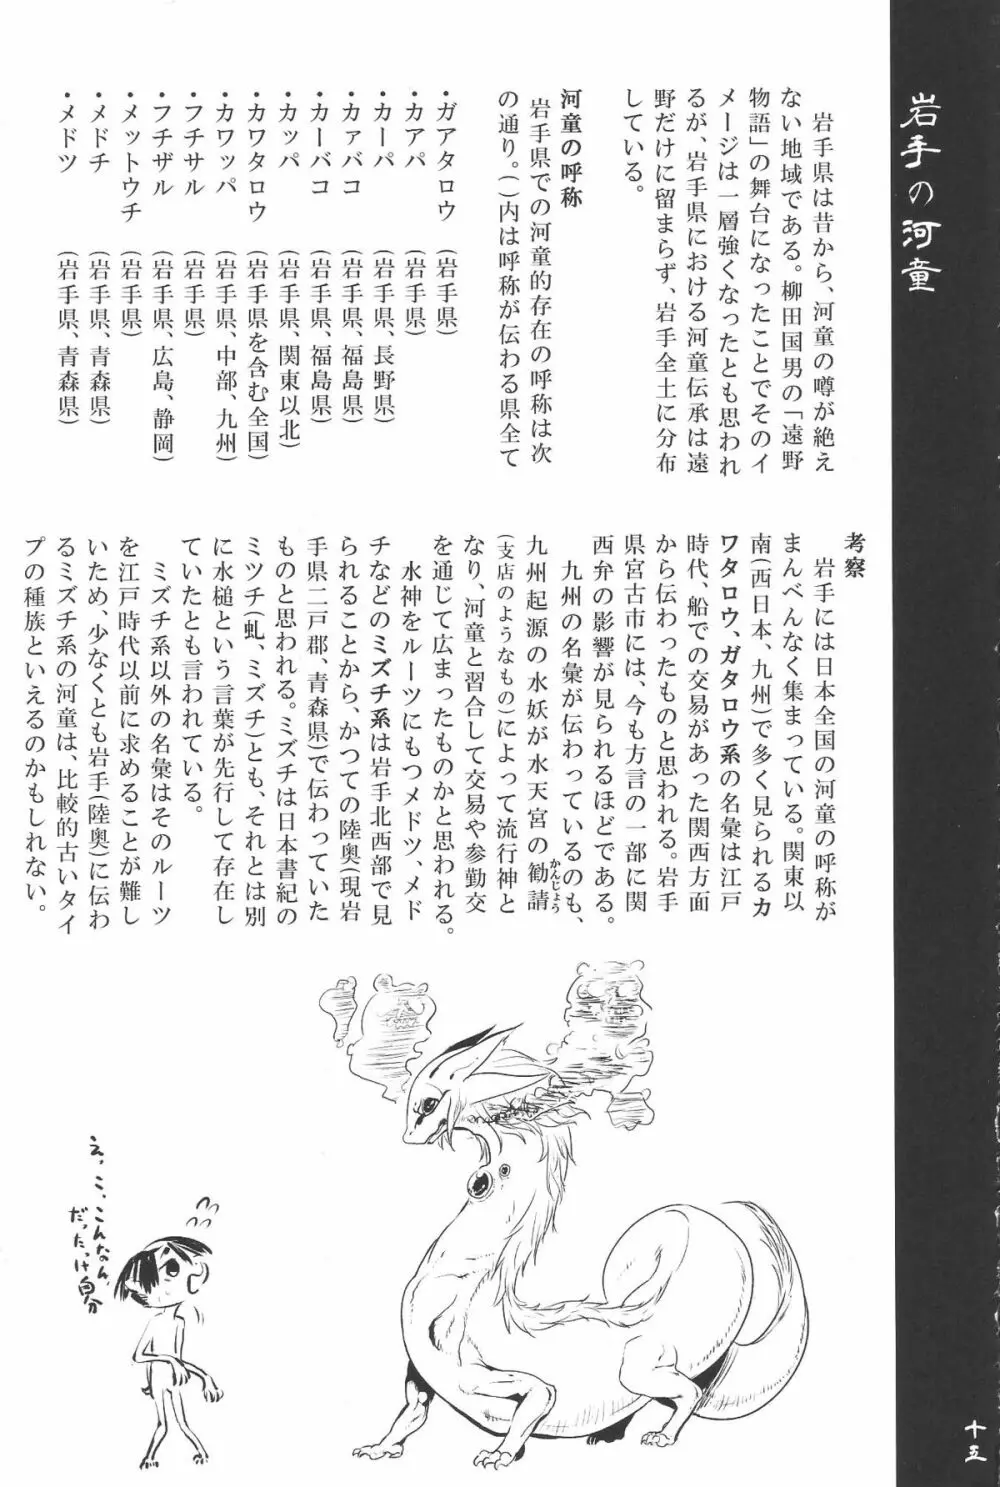 岩手の河童
岩手県は昔から、河童の噂が絶え
ない地域である。柳田国男の「遠野
物語」の舞台になったことでそのイ
メージは一層強くなったとも思われ
るが、岩手県における河童伝承は遠
野だけに留まらず、岩手全土に分布
している。
河童の呼称
岩手県での河童的存在の呼称は次
の通り。()内は呼称が伝わる県全て
・ガアタロウ (岩手県)
・カアパ (岩手県)
・カーパ (岩手県、長野県)
・カァバコ (岩手県、福島県)
・カーバコ (岩手県、福島県)
・カッパ (岩手県、関東以北)
・カワタロウ (岩手県を含む全国)
・カワッパ (岩手県、中部、九州)
・フチサル (岩手県)
・フチザル (岩手県、広島、静岡)
・メットウチ (岩手県)
・メドチ (岩手県、青森県)
・メドツ (岩手県、青森県)
考察
岩手には日本全国の河童の呼称が
まんべんなく集まっている。関東以
南(西日本、九州)で多く見られるカ
ワタロウ、ガタロウ系の名彙は江戸
時代、船での交易があった関西方面
から伝わったものと思われる。岩手
県宮古市には、今も方言の一部に関
西弁の影響が見られるほどである。
九州の名彙が伝わっているのも、
九州起源の水妖が水天宮の勧請かんじょう
(支店のようなもの)によって流行神と
なり、河童と習合して交易や参勤交
を通じて広まったものかと思われる。
水神をルーツにもつメドツ、メド
チなどのミズチ系は岩手北西部で見
られることから、かつての陸奥(現岩
手県二戸郡、青森県)で伝わっていた
ものと思われる。ミズチは日本書紀の
ミツチ(虬、ミズチ)とも、それとは別
に水槌という言葉が先行して存在し
ていたとも言われている。
ミズチ系以外の名彙はそのルーツ
を江戸時代以前に求めることが難し
いため、少なくとも岩手(陸奥)に伝わ
るミズチ系の河童は、比較的古いタイ
プの種族といえるのかもしれない。
え、こ、こんなん
だったっけ自分
十五